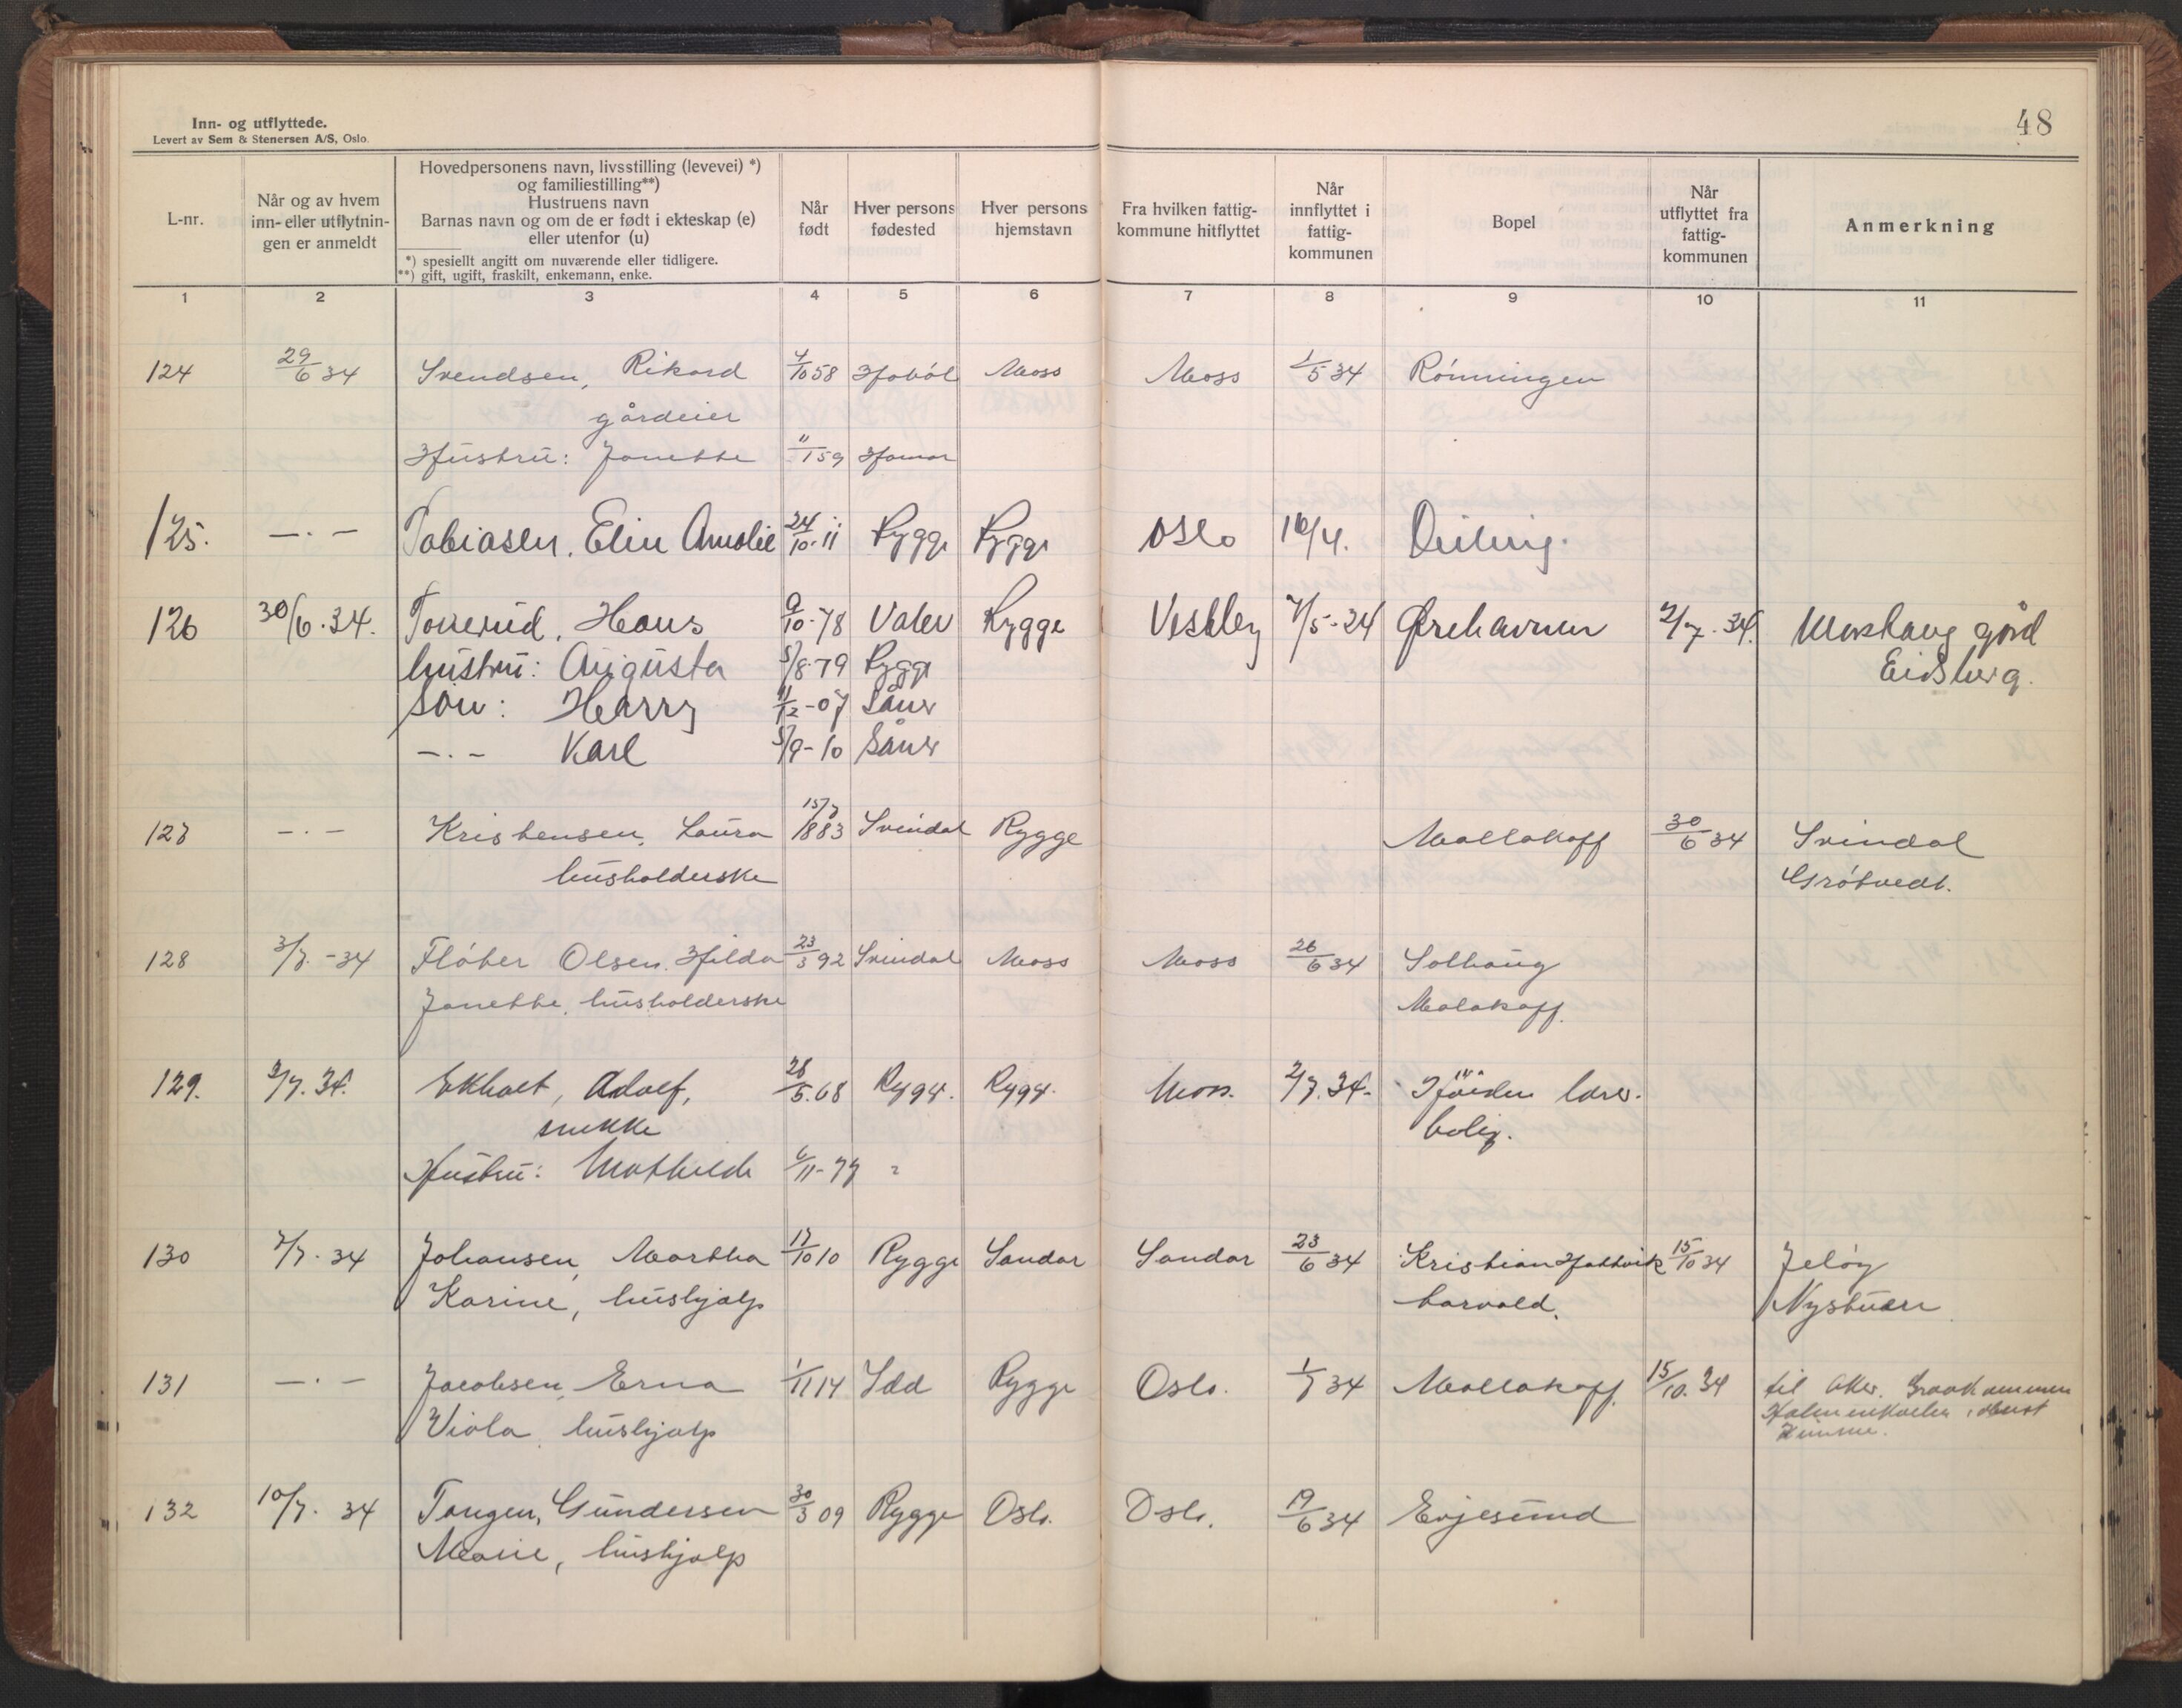 48
Inn- og utflyttede.
Levert av Sem & Stenersen A/S, Oslo.
L-nr.
Når og av hvem
inn- eller utflytnin-
gen er anmeldt
Hovedpersonens navn, livsstilling (levevei) *)
og familiestilling**)
Hustruens navn
Barnas navn og om de er født i ekteskap (e)
eller utenfor (u)
*) spesiellt angitt om nuværende eller tidligere.
**) gift, ugift, fraskilt, enkemann, enke.
Når
født
Hver persons
fødested
Hver persons
hjemstavn
Fra hvilken fattig-
kommune hitflyttet
Når
innflyttet i
fattig-
kommunen
Bopel
Når
utflyttet fra
fattig-
kommunen
Anmerkning
1 2 3 4 5 6 7 8 9 10 11
124 29/6 34 Svendsen, Rikard 4/10 58 Hobøl Moss Moss 1/5 34 Rønningen
gårdeier
Hustru: Janette 11/1 59 Hamar
125. —·— Tobiasen, Elin Amalie 24/10-11 Rygge Rygge Oslo 16/4.
126 30/6.34. Hans 9/10-78 Våler Rygge Vestby 7/5-24 Ørehavnen 2/7.34. gård
hustru: Augusta 5/8-79 Rygge Eidsberg.
søn: Harry 11/12-07 Såner
—·— Karl 5/9-10 Såner
127 —·— Kristensen, Laura 15/7 1883 Svindal Rygge Mallakoff 30/6 34 Svindal
husholderske Grøtvedt.
128 3/7.-34 Fløter Olsen, Hilda 23/3 92 Svindal Moss Moss 26/6 34 Solhaug
Janette, husholderske Malakoff.
129. 3/7.34. Ekholt, Adolf, 28/5.68 Rygge. Rygge. Moss. 2/7.34.
bolig.
Hustru: Mathilde 6/11-77 "
130 7/7.34 Johansen, Martha 17/10 10 Rygge Sandar Sandar 23/6 34 Kristian Hattvik 15/10 34 Jeløy
Karine, hushjælp
131 —·— Jacobsen, Erna 1/11 14 Idd Rygge Oslo. 1/7 34 Mallakoff. 15/10.34 til Aker.
Viola, hushjælp
132 10/7.34 Tangen, Gundersen 30/3 09 Rygge Oslo. Oslo. 19/6 34 Evjesund
Marie, hushjælp